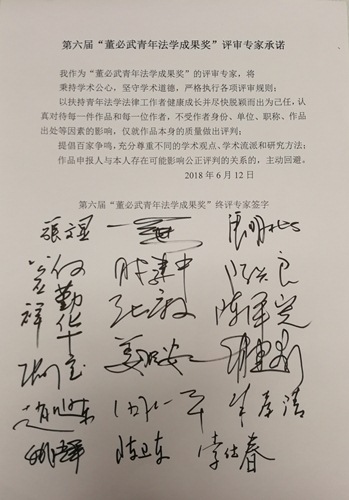 第六届“董必武青年法学成果奖”评审专家承诺
我作为“董必武青年法学成果奖”的评审专家，将
秉持学术公心，坚守学术道德，严格执行各项评审规则；
以扶持青年法学法律工作者健康成长并尽快脱颖而出为己任，认
真对待每一件作品和每一位作者，不受作者身份、单位、职称、作品
出处等因素的影响，仅就作品本身的质量做出评判；
提倡百家争鸣，充分尊重不同的学术观点、学术流派和研究方法；
作品申报人与本人存在可能影响公正评判的关系的，主动回避。
2018 年 6 月 12 日
第六届“董必武青年法学成果奖”终评专家签字
張文显
何勤华
陈泽宪
姜明安
陈卫东 李仕春